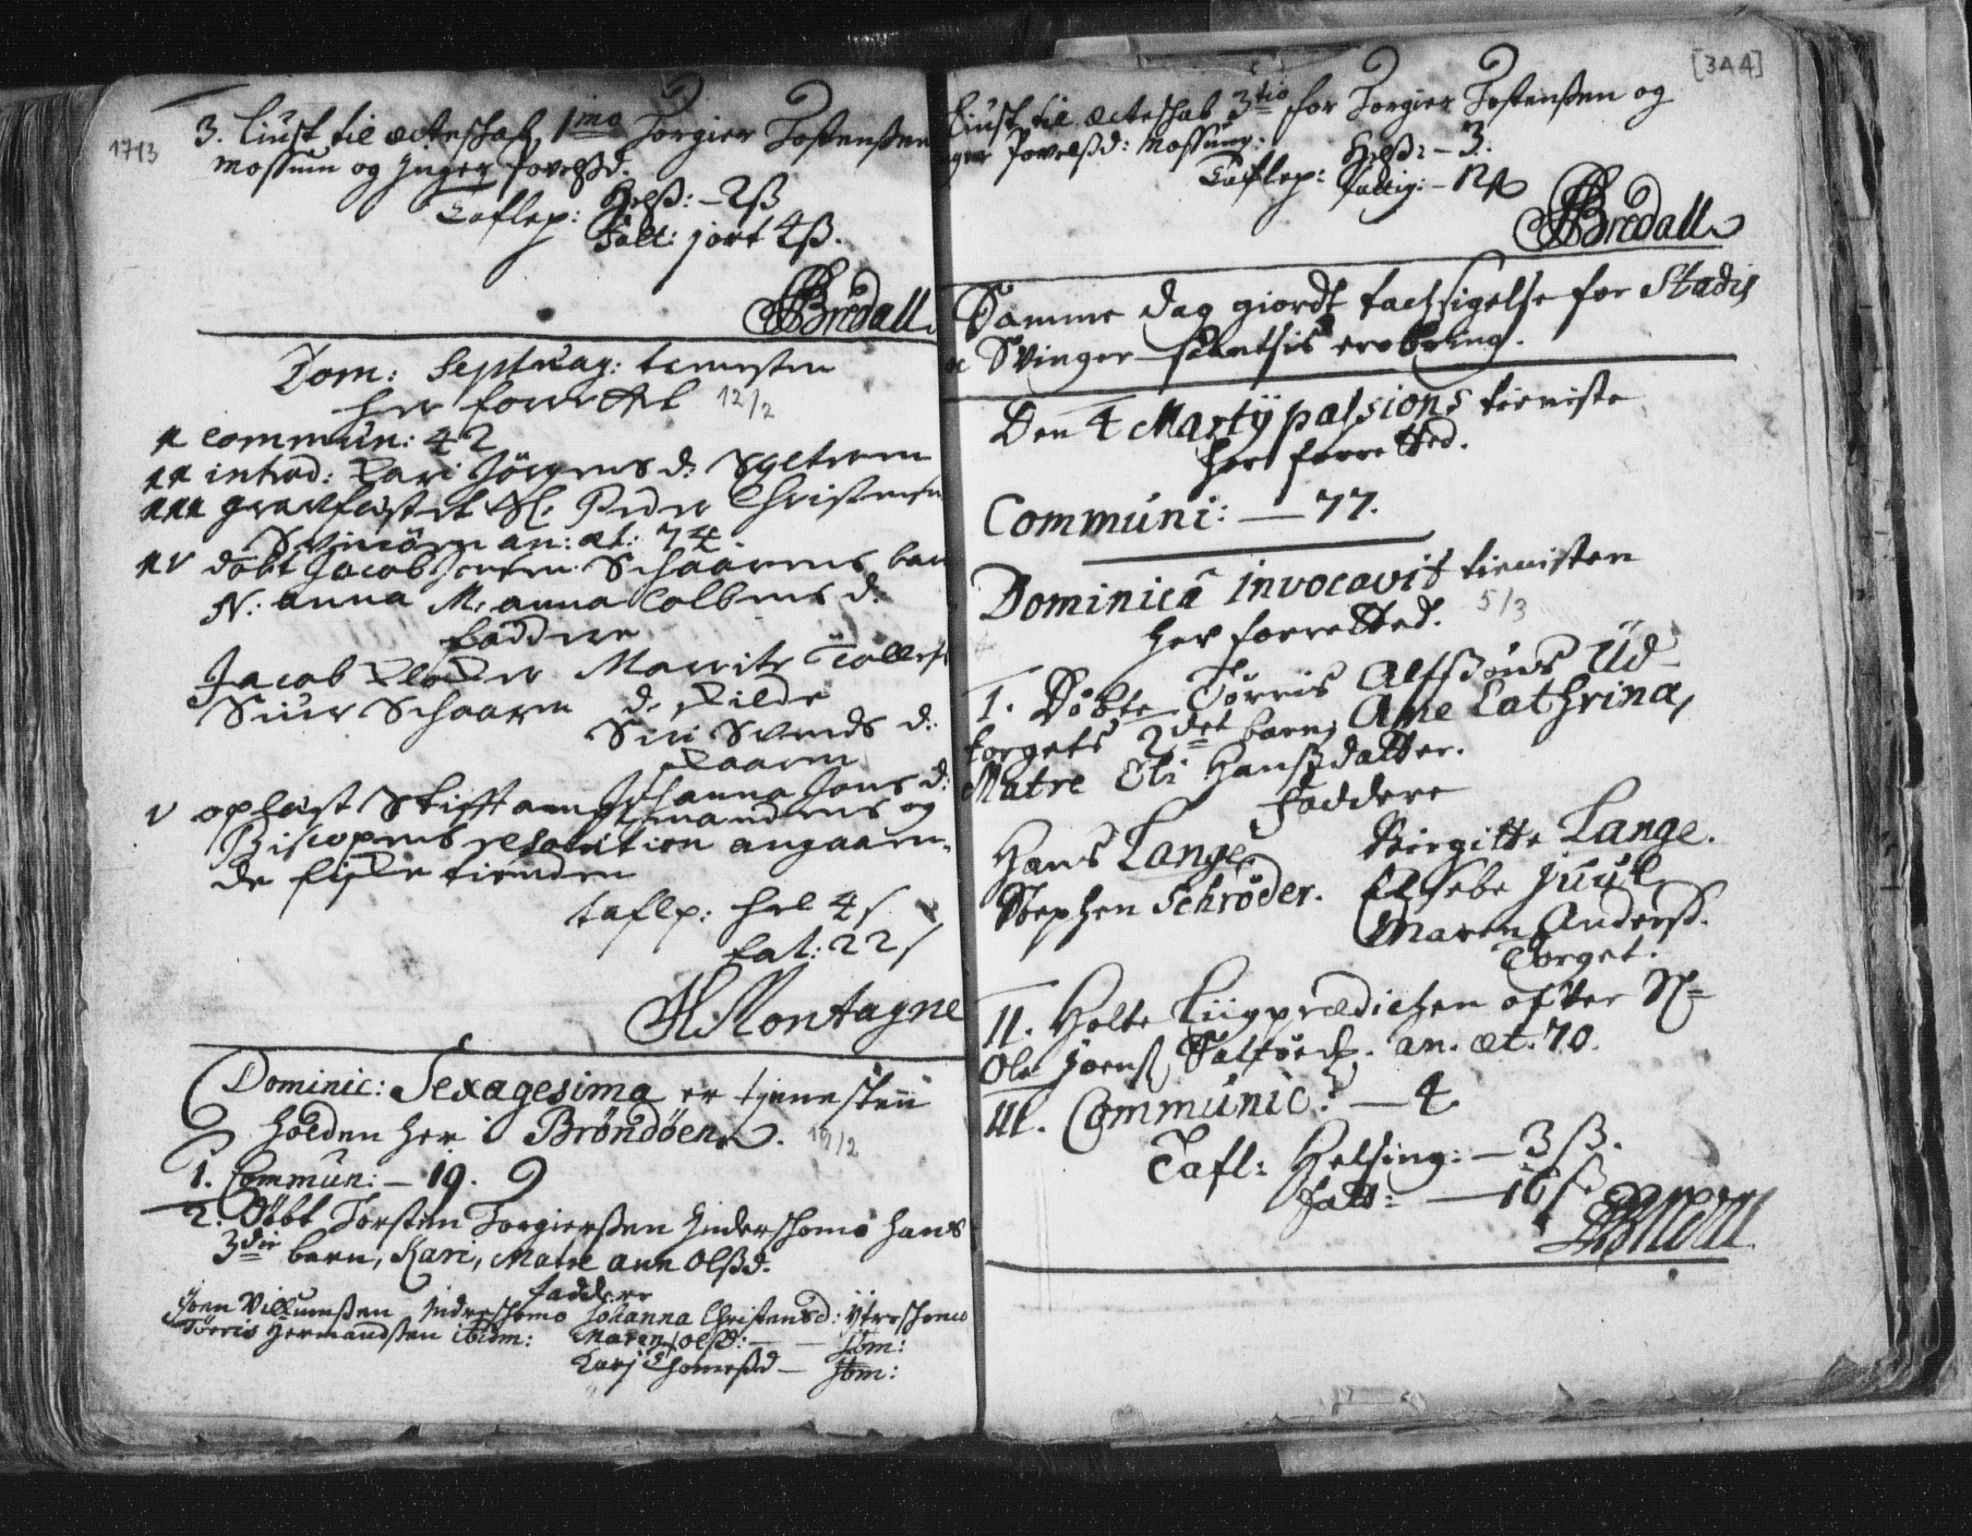 1713
3. Liust til ecteschab 1mo Torgier Tostenßen
Mossum og Inger Povelßd.
Taflep: Helß: - 2 ß
Falt: jort 4 ß.
Bredall
Dom: Septuag: tienesten
her forrettet 12/2
commun: 42
introd: Kari Jörgens d:
graffestet Sl. Peder Christensen
an: æt: 74
döbt Jacob Jensen Schaarens barn
N: anna M: anna Colbens d:
faddere
Jacob Marrite
Siur Schaaren d.
Siri Svends d:
Johanna Jons d:
oplæst Stifftamtmandens og
Biscopens resolution angaaen-
de fiske tienden
taflp: hel 4 s
fat: 22 s
H. Montagne
Dominic: Sexagesima er tjenesten
holden her i Bröndöen. 19/2
1. Commun: - 19.
2. Döbt Torsten Torgierßen Inderschomo hans
3die barn, Kari, Matre ann Olßd.
faddere
Joen Villumßen Indreschomo Johanna Christensd: Ytreschomo
Törris Hermandßen ibidm: Maren Olßd: - - Ibm:
Karj Thomeßd - Ibm:
[344]
Liust til ecteschab 3tio for Torgier Tostenßen og
Povelßd: Mossum:
Taflep: Helß: - 3.
fattig: - 12 ß
Bredall
Samme dag giordt tachsigelse for Stadis
Svinger schantsis erobring.
Den 4 Martij passions tieniste
her forretted.
Communi: - 77.
Dominica invocavit tienisten
her forretted. 5/3
I. Döbte Törris Alfsöns Ud-
torgets 2det barn, Ane Cathrina,
Matre Eli Hansdatter.
Faddere
Hans Lange Birgitte Lange.
Stephen Schröder. Elsebe Juul
Maren Anderß.
Torget.
II. Holte Liigprædichen efter Sl=
Ole Joenß an. æt. 70.
III. Communic: - 4
Tafl: Helsing: - 3 ß.
Fatt: - 16 ß
Bredal